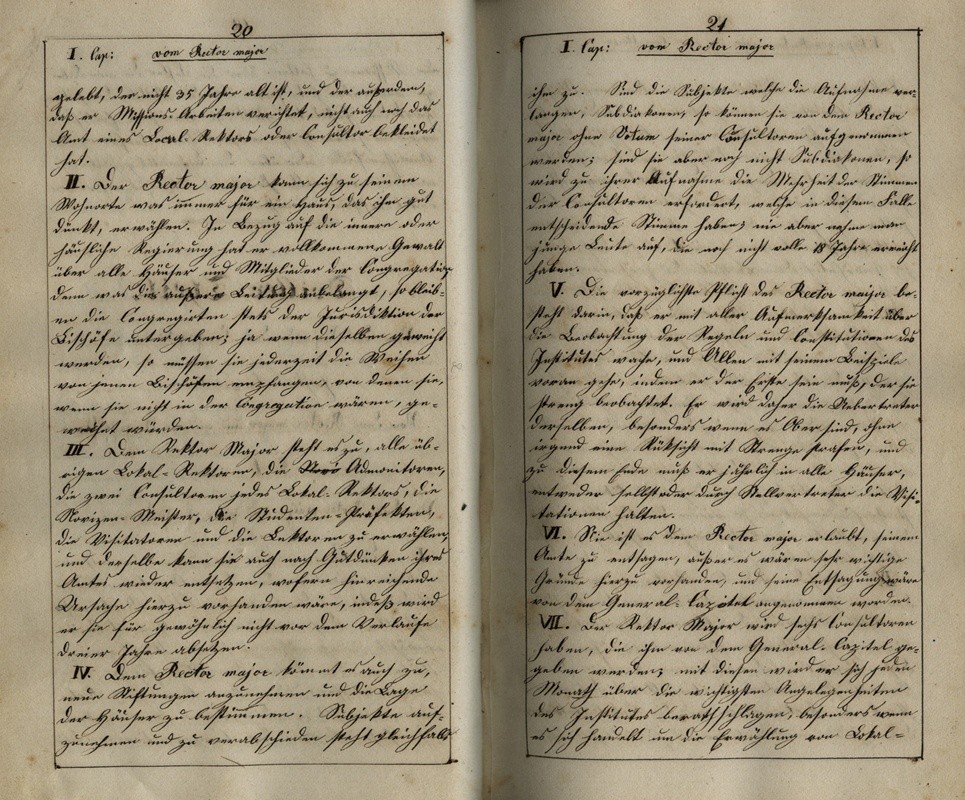 20
I. Cap: vom Rector major
gelebt, der nicht 35 Jahre alt ist, und der außerdem,
daß er Missions-Arbeiten verrichtet, nicht auch noch das
Amt eines Local-Rektors oder Consultor bekleidet
hat.
II. Der Rector major kann sich zu seinem
Wohnorte was immer für ein Haus, das ihm gut
dünkt, erwählen. In Bezug auf die innere oder
häusliche Regierung hat er vollkommene Gewalt
über alle Häuser und Mitglieder der Congregation
denn was die äußere Leitung anbelangt, so bleib-
en die Congregirten stets der Jurisdiktion der
Bischöfe untergeben; ja wenn dieselben geweiht
werden, so müssen sie jederzeit die Weihen
von jenen Bischöfen empfangen, von denen sie,
wenn sie nicht in der Congregation wären, ge-
weihet würden.
III. Dem Rektor Major steht es zu, alle üb-
rigen Lokal-Rektoren, die Admonitoren,
die zwei Consultoren jedes Lokal-Rektors, die
Novizen-Meister, die Studenten-Präfekten,
die Visitatoren und die Lektoren zu erwählen,
und derselbe kann sie auch nach Gutdünken ihres
Amtes wieder entsetzen, wofern hinreichende
Ursache hierzu vorhanden wäre, indeß wird
er sie für gewöhnlich nicht vor dem Verlaufe
dreier Jahre absetzen.
IV. Dem Rector major kömmt es auch zu,
neue Stiftungen anzunehmen und die Lage
der Häuser zu bestimmen. Subjekte auf-
zunehmen und zu verabschieden steht gleichfalls
21
I. Cap: vom Rector major
ihm zu. Sind die Subjekte welche die Aufnahme ver-
langen, Subdiakonen, so können sie von dem Rector
major ohne Votum seiner Consultoren aufgenommen
werden; sind sie aber noch nicht Subdiakonen, so
wird zu ihrer Aufnahme die Mehrheit der Stimmen
der Consultoren erfordert, welche in diesem Falle
entscheidende Stimme haben; nie aber nehme man
junge Leute auf, die noch nicht volle 18 Jahre erreicht
haben.
V. Die vorzüglichste Pflicht des Rector maijor be-
steht darin, daß er mit aller Aufmerksamkeit über
die Beobachtung der Regeln und Constitutionen des
Institutes wache, und Allen mit seinem Beispiele
voran gehe, indem er der Erste sein muß, der sie
streng beobachtet. Er wird daher die Uebertreter
derselben, besonders wenn es Ober sind, ohne
irgend eine Rüksicht mit Strenge strafen, und
zu diesem Ende muß er jährlich in alle Häuser,
entweder selbst oder durch Stellvertreter die Visi-
tationen halten.
VI. Nie ist es dem Rector major erlaubt, seinem
Amte zu entsagen, außer es wären sehr wichtige
Gründe hierzu vorhanden, und seine Entsagung wäre
von dem General-Capitel angenommen worden.
VII. Der Rektor Major wird sechs Consultoren
haben, die ihm von dem General-Capitel ge-
geben werden; mit diesen wird er sich jeden
Monath über die wichtigsten Angelegenheiten
des Institutes berathschlagen, besonders wenn
es sich handelt um die Erwählung von Lokal-